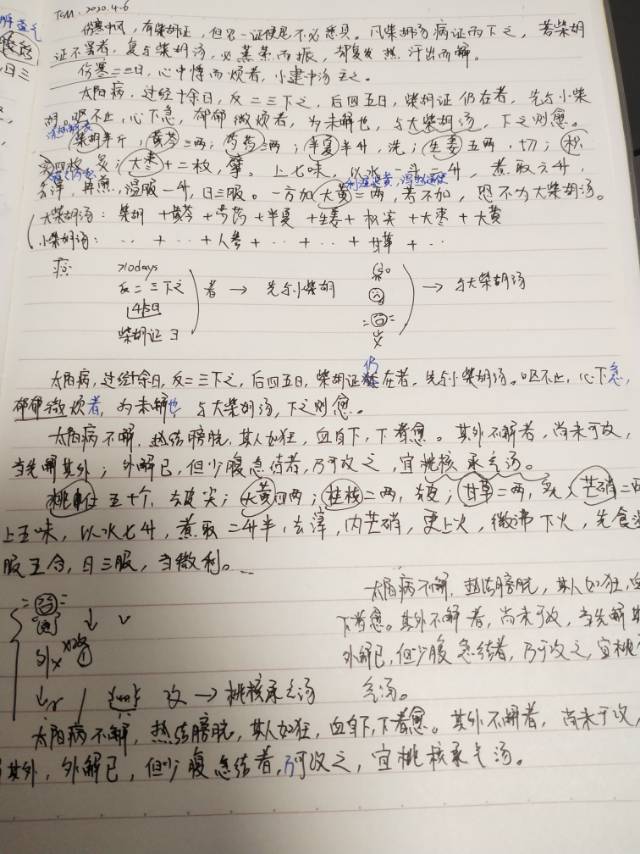 TCM. 2020.4.6
伤寒中风，有柴胡证，但见一证便是不必悉具。凡柴胡汤病证而下之，若柴胡
证不罢者，复与柴胡汤，必蒸蒸而振，却复发热，汗出而解。
伤寒二三日，心中悸而烦者，小建中汤主之。
太阳病，过经十余日，反二三下之，后四五日，柴胡证仍在者，先与小柴
胡。呕不止，心下急，郁郁微烦者，为未解也，与大柴胡汤，下之则愈。
柴胡半斤，黄芩三两；芍药三两；半夏半升，洗；生姜五两，切；枳
实四枚，炙；大枣十二枚，擘。上七味，以水一斗二升，煮取六升，
去滓，再煎，温服一升，日三服。一方加大黄二两，若不加，恐不为大柴胡汤。
大柴胡汤：柴胡 + 黄芩 + 芍药 + 半夏 + 生姜 + 枳实 + 大枣 + 大黄
小柴胡汤： ‥ + ‥ + 人参 + ‥ + ‥ + 甘草 + ‥
>10days
反二三下之 者 → 先与小柴胡 → 与大柴胡汤
4,5日
柴胡证 ∃
太阳病，过经十余日，反二三下之，后四五日，柴胡证仍在者，先与小柴胡汤。呕不止，心下急，
郁郁微烦者，为未解也 与大柴胡汤，下之则愈。
太阳病不解，热结膀胱，其人如狂，血自下，下者愈。其外不解者，尚未可攻，
当先解其外；外解已，但少腹急结者，乃可攻之，宜桃核承气汤。
桃仁五十个，去皮尖；大黄四两；桂枝二两，去皮；甘草二两，炙；芒硝二两
上五味，以水七升，煮取二升半，去滓，内芒硝，更上火，微沸下火，先食温
服五合，日三服，当微利。
太阳病不解，热结膀胱，其人如狂，血
下者愈。其外不解者，尚未可攻，当先解其
外解已，但少腹急结者，乃可攻之，宜桃
气汤。
外
攻 → 桃核承气汤
太阳病不解，热结膀胱，其人如狂，血自下，下者愈。其外不解者，尚未可攻，
其外，外解已，但少腹急结者，乃可攻之，宜桃核承气汤。